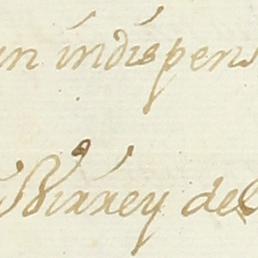 un indispens
Virrey del